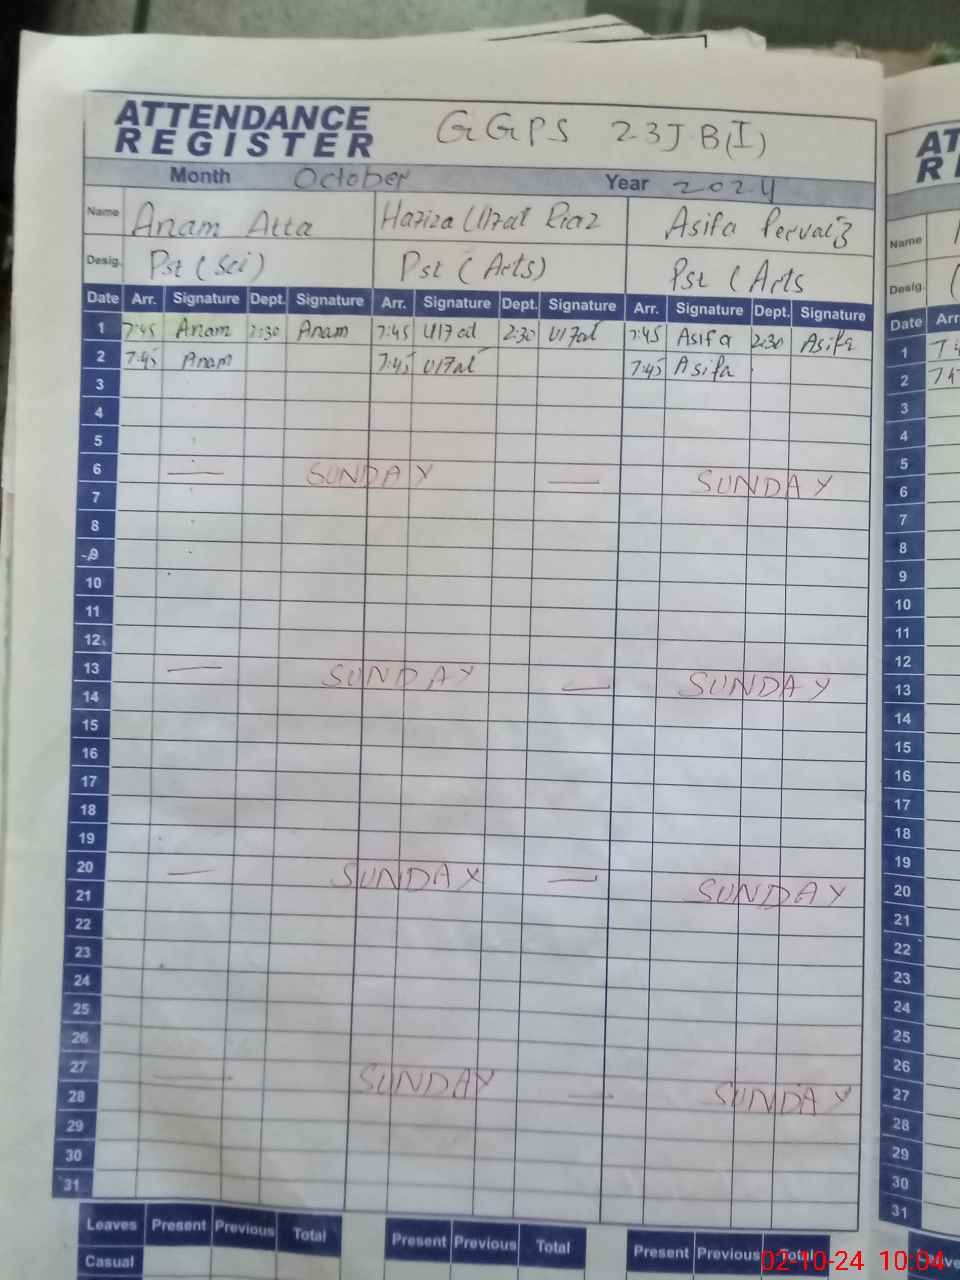 ATTENDANCE
REGISTER
GGPS 23JB(I)
Month October Year 2024
Name Anam Atta Hafiza Uzal Riaz Asifa Pervaiz
Desig. Pst (Sci) Pst (Arts) Pst (Arts
Date Arr. Signature Dept. Signature Arr. Signature Dept. Signature Arr. Signature Dept. Signature
1 7:45 Anam 2:30 Anam 7:45 2:30 7:45 Asifa 2:30 Asifa
2 7:45 Anam 7:45 7:45 Asifa
3
4
5
6 — SUNDAY — SUNDAY
7
8
9
10
11
12
13 — SUNDAY — SUNDAY
14
15
16
17
18
19
20 — SUNDAY — SUNDAY
21
22
23
24
25
26
27 — SUNDAY — SUNDAY
28
29
30
31
Leaves Present Previous Total Present Previous Total Present Previous Total
Casual
AT
RE
Name
Desig.
Date Arr
1 7 4
2
3
4
5
6
7
8
9
10
11
12
13
14
15
16
17
18
19
20
21
22
23
24
25
26
27
28
29
30
31
02-10-24 10:04